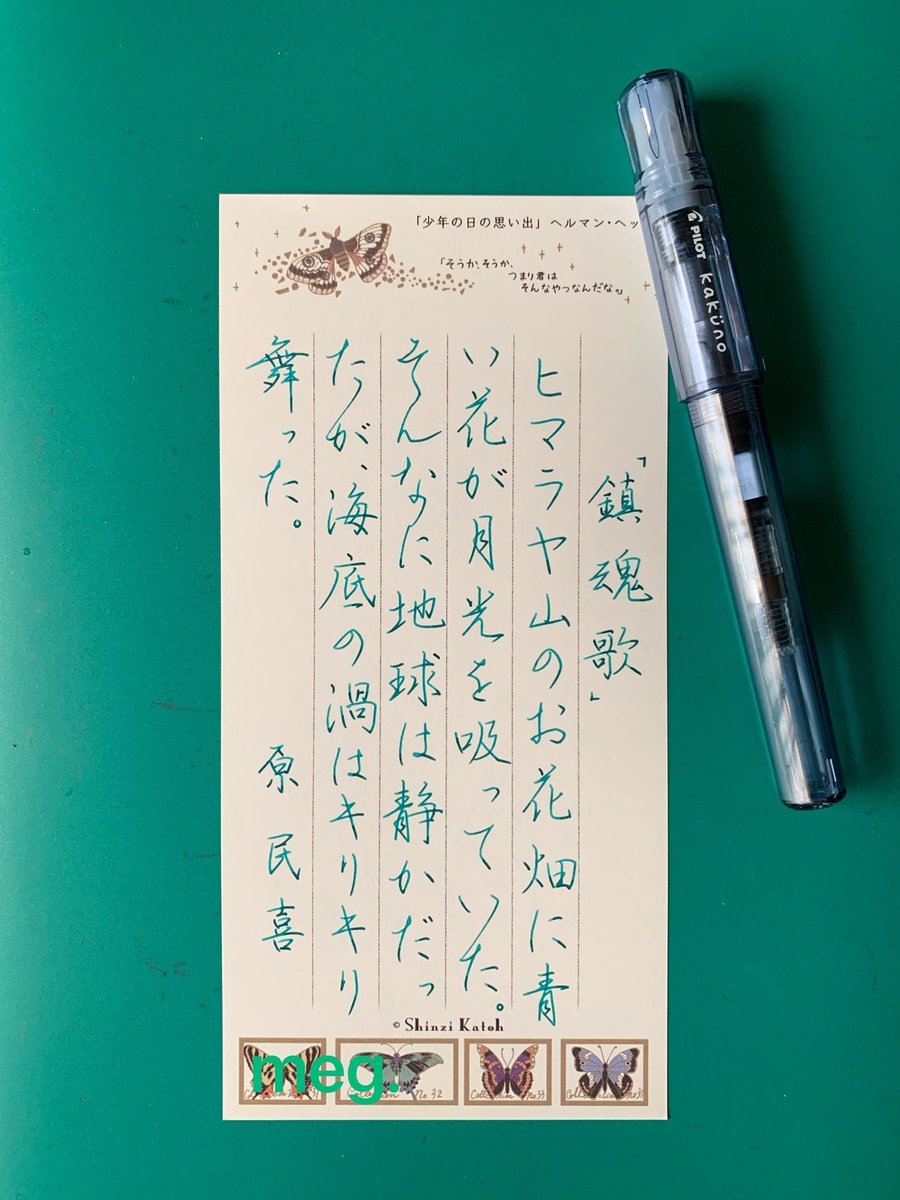 「少年の日の思い出」ヘルマン・ヘッ
「そうか、そうか、
つまり君は
そんなやつなんだな。」
「鎮魂歌」
ヒマラヤ山のお花畑に青
い花が月光を吸っていた。
そんなに地球は静かだっ
たが、海底の渦はキリキリ
舞った。
原民喜
© Shinzi Katoh
meg.
No.32
Collection No.33
PILOT
Kaküno